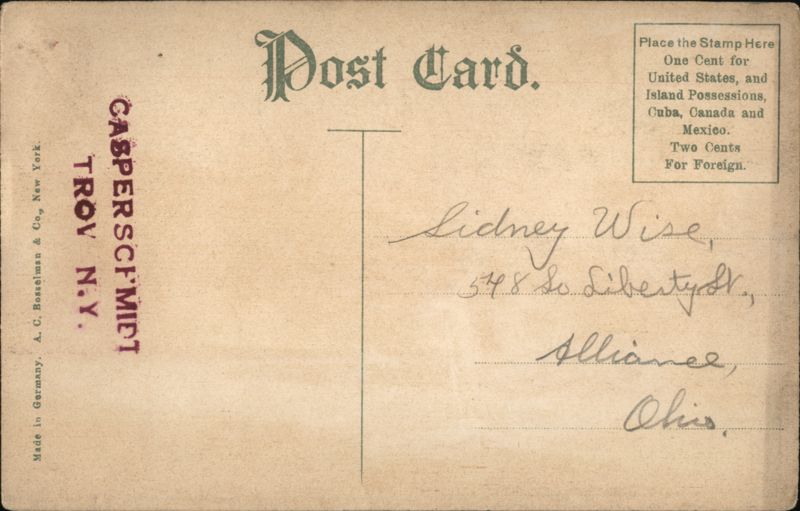 Post Card.
Place the Stamp Here
One Cent for
United States, and
Island Possessions,
Cuba, Canada and
Mexico.
Two Cents
For Foreign.
CASPERSCHMIDT
TROY N.Y.
Made in Germany. A. C. Bosselman & Co., New York.
Sidney Wise,
548 So Liberty St.,
Alliance,
Ohio.